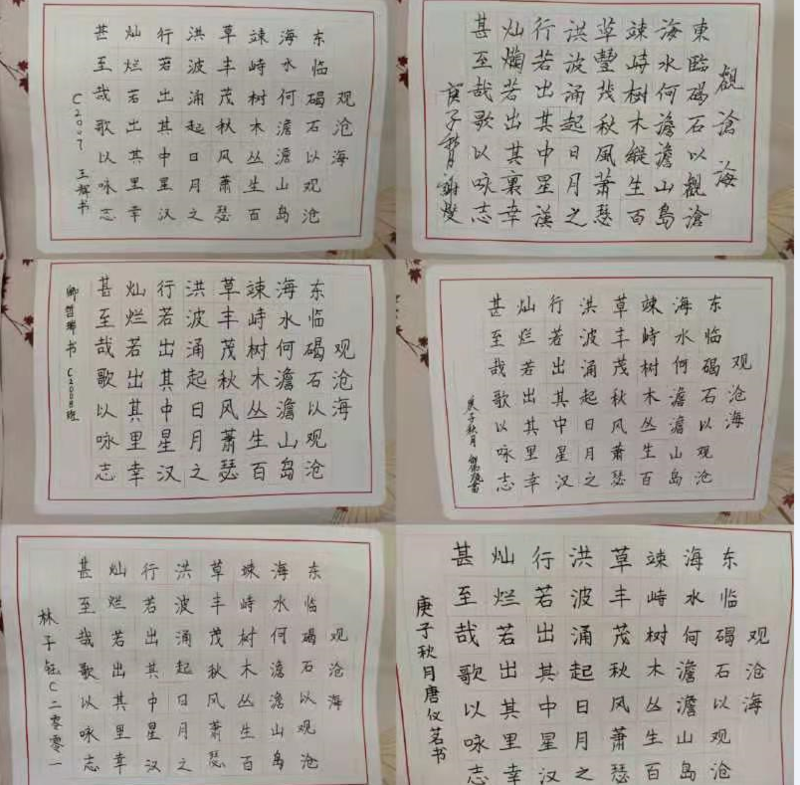 观沧海
东临碣石以观沧
海水何澹澹山岛
竦峙树木丛生百
草丰茂秋风萧瑟
洪波涌起日月之
行若出其中星汉
灿烂若出其里幸
甚至哉歌以咏志
C2007 王辉书
觀滄海
東臨碣石以觀滄
海水何澹澹山島
竦峙樹木縱生百
草豐茂秋風萧瑟
洪波涌起日月之
行若出其中星漢
灿爛若出其裏幸
甚至哉歌以咏志
庚子秋月
观沧海
东临碣石以观沧
海水何澹澹山岛
竦峙树木丛生百
草丰茂秋风萧瑟
洪波涌起日月之
行若出其中星汉
灿烂若出其里幸
甚至哉歌以咏志
卿 书 C2008班
观沧海
东临碣石以观沧
海水何澹澹山岛
竦峙树木丛生百
草丰茂秋风萧瑟
洪波涌起日月之
行若出其中星汉
灿烂若出其里幸
甚至哉歌以咏志
庚子秋月 书
观沧海
东临碣石以观沧
海水何澹澹山岛
竦峙树木丛生百
草丰茂秋风萧瑟
洪波涌起日月之
行若出其中星汉
灿烂若出其里幸
甚至哉歌以咏志
林子钰C二零零一
观沧海
东临碣石以观沧
海水何澹澹山岛
竦峙树木丛生百
草丰茂秋风萧瑟
洪波涌起日月之
行若出其中星汉
灿烂若出其里幸
甚至哉歌以咏志
庚子秋月唐仪茗书